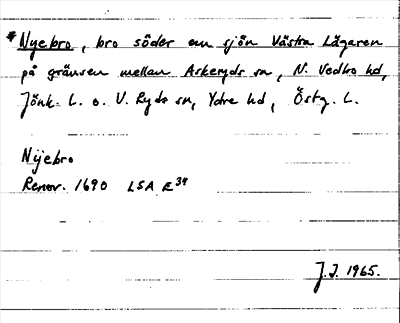 *Nyebro, bro söder om sjön Västra Lägaren
på gränsen mellan Askeryds sn, N. Vedbo hd,
Jönk. L. o. V. Ryds sn, Ydre hd, Östg. L.
Nÿebro
Renov. 1690 LSA E34
J.J. 1965.